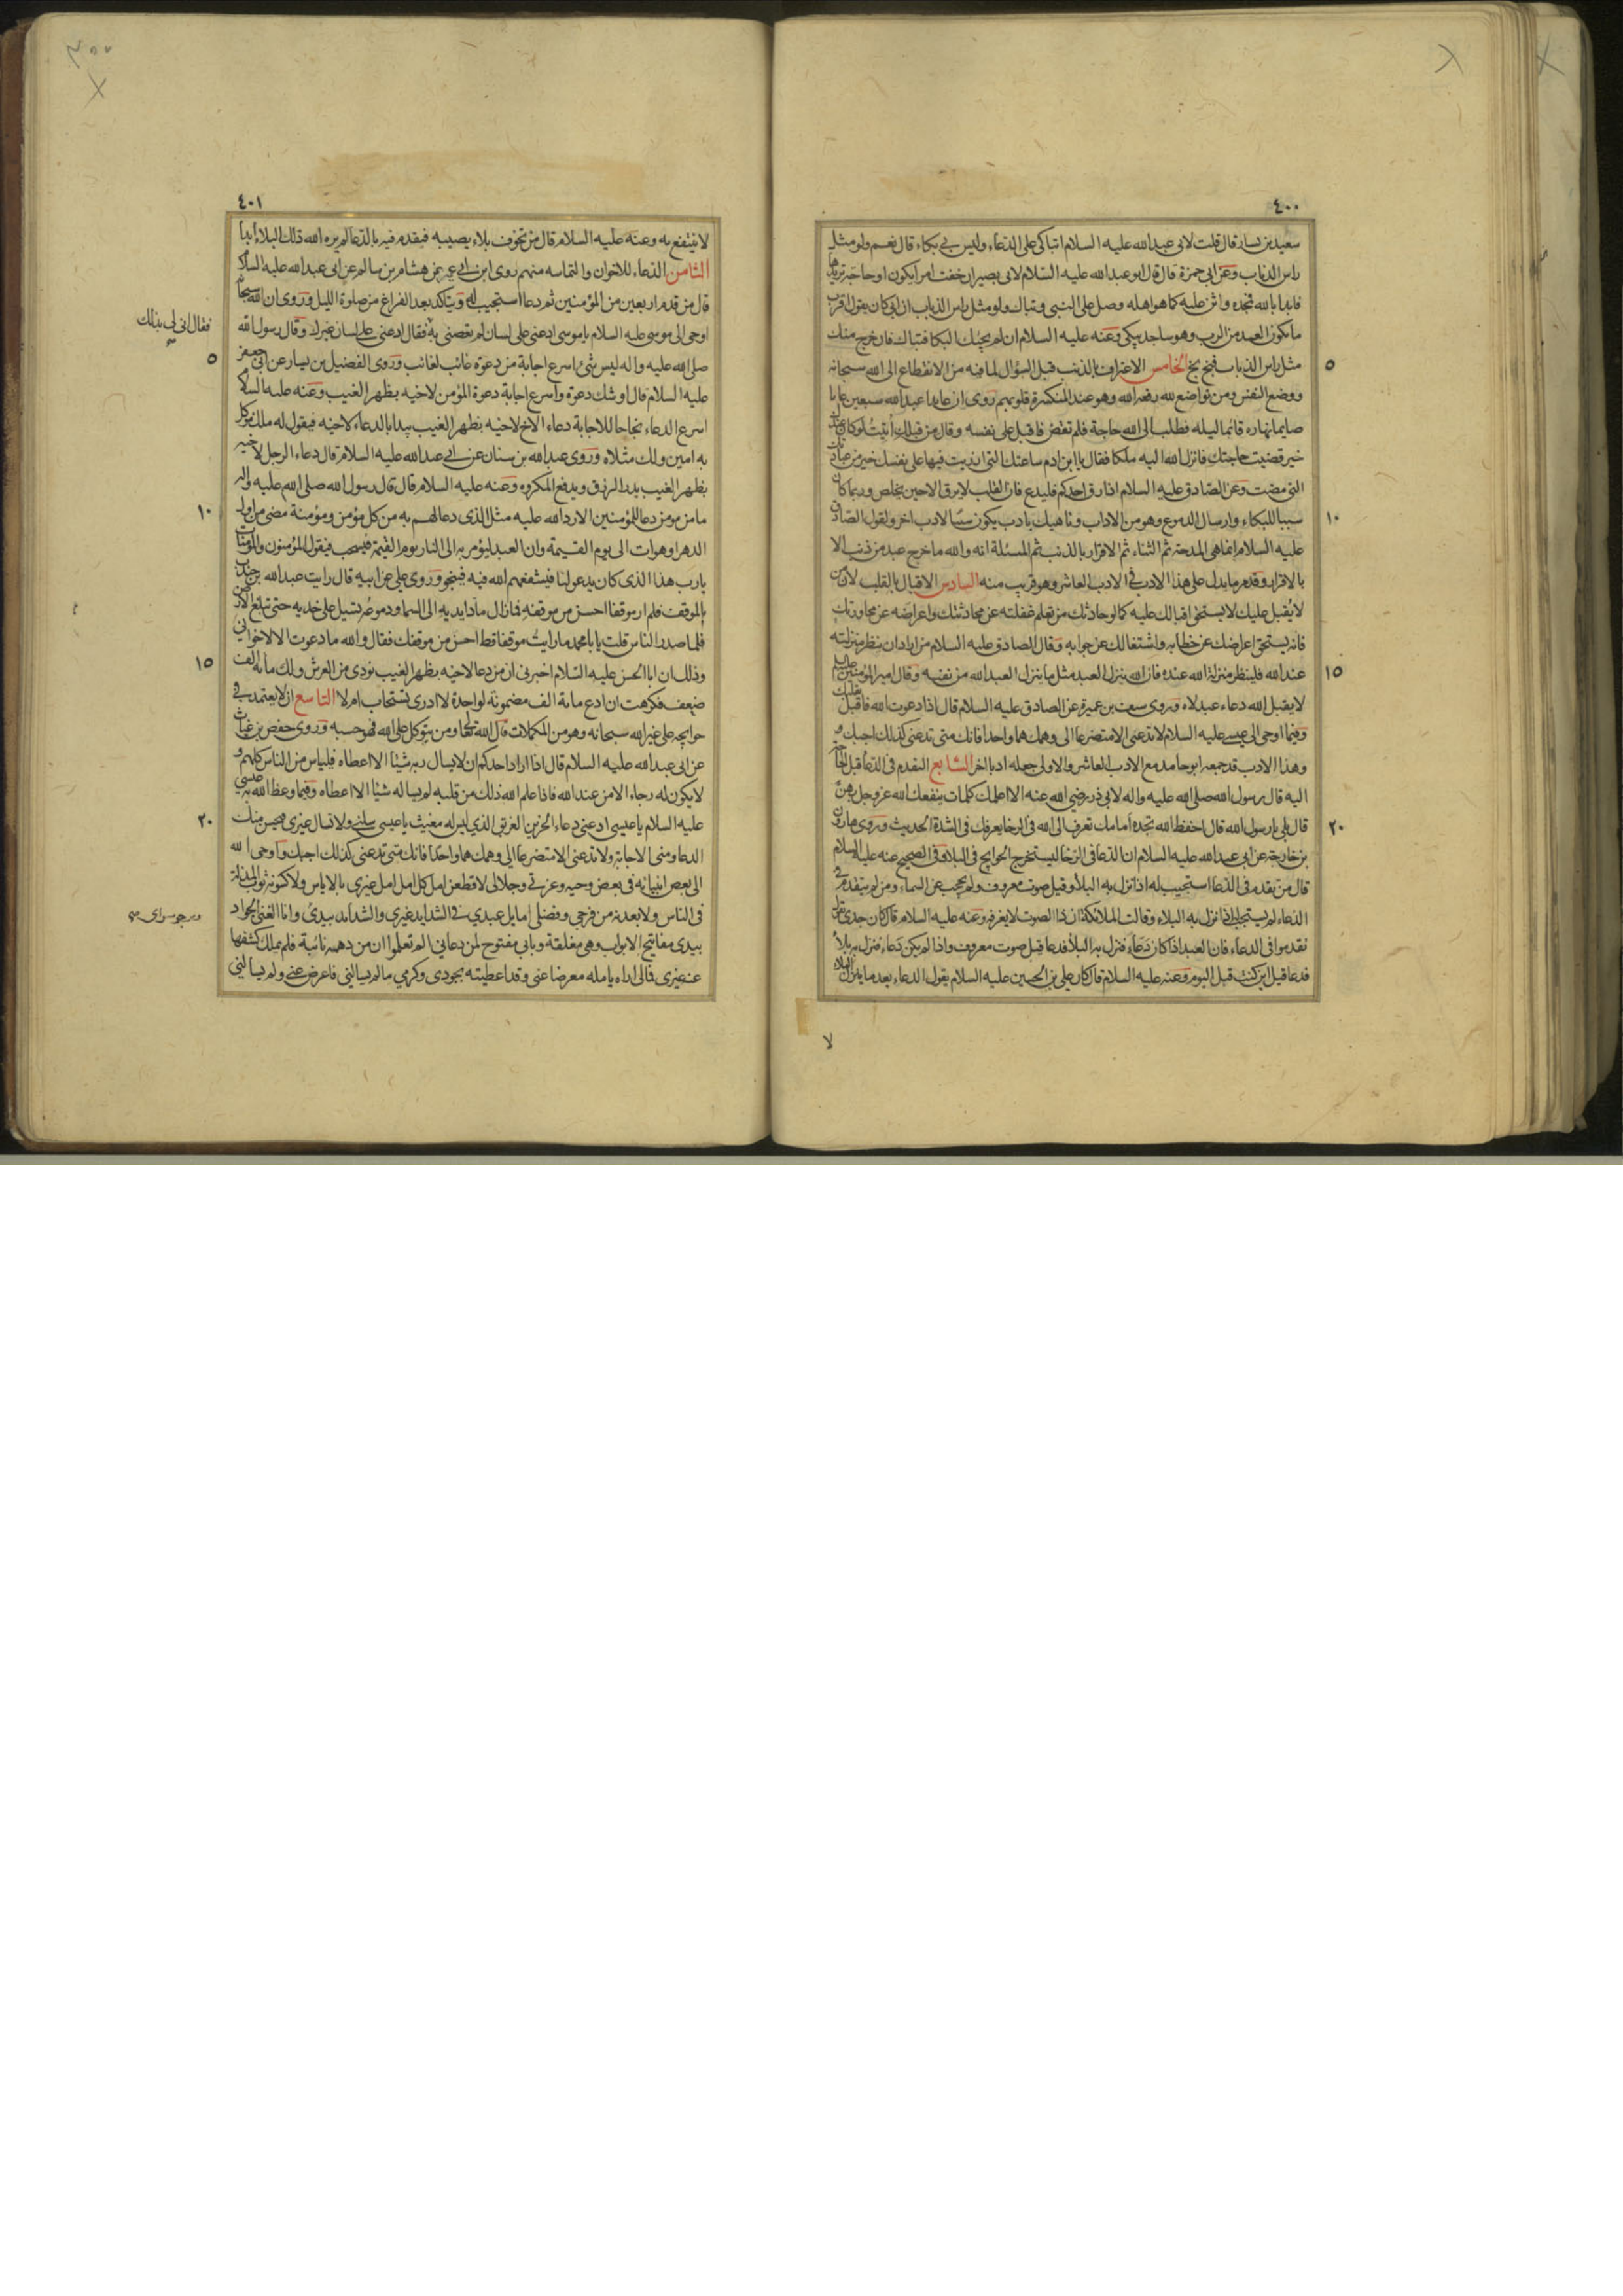 ٤٠٠
سعيد بن يسار قال قلت لابى عبد الله عليه السلام اتباكى على الدعاء وليس لى بكاء قال نعم ولو مثل
راس الذباب وعن ابى حمزة قال قال ابو عبد الله عليه السلام لابى بصير ان خفت امرا يكون او حاجة تريدها
فابدا بالله فمجده واثن عليه كما هو اهله وصل على النبى وتباك ولو مثل راس الذباب ان ابى كان يقول اقرب
ما يكون العبد من الرب وهو ساجد يبكى وعنه عليه السلام ان لم يجئك البكا فتباك فان خرج منك
٥
مثل راس الذباب فبخ بخ الخامس الاعتراف بالذنب قبل السؤال لما فيه من الانقطاع الى الله سبحانه
ووضع النفس ومن تواضع لله رفعه الله وهو عند المنكسرة قلوبهم روى ان عابدا عبد الله سبعين عاما
صايما نهاره قائما ليله فطلب الى الله حاجة فلم تقض فاقبل على نفسه وقال من قبلك اتيت لو كان عندك
خير قضيت حاجتك فانزل الله اليه ملكا فقال يا ابن ادم ساعتك التى ازريت فيها على نفسك خير من عبادتك
التى مضت وعن الصادق عليه السلام اذا رق احدكم فليدع فان القلب لا يرق الا حين يخلص وربما كان
١٠
سببا للبكاء وارسال الدموع وهو من الاداب وناهيك بادب يكون سببا لادب اخر ولقول الصادق
عليه السلام انما هى المدحة ثم الثناء ثم الاقرار بالذنب ثم المسئلة انه والله ما خرج عبد من ذنب الا
بالاقرار وقدم ما يدل على هذا الادب فى الادب العاشر وهو قريب منه السادس الاقبال بالقلب لان من
لا يقبل عليك لا يستحق اقبالك عليه كما لو حادثك من تعلم غفلته عن محادثتك واعراضه عن محاورتك
فانه يستحق اعراضك عن خطابه واشتغالك عن جوابه وقال الصادق عليه السلام من اراد ان ينظر منزلته
١٥
عند الله فلينظر منزلة الله عنده فان الله ينزل العبد مثل ما ينزل العبد الله من نفسه وقال امير المؤمنين عليه السلام
لا يقبل الله دعاء عبد لاه وروى سيف بن عميرة عن الصادق عليه السلام قال اذا دعوت الله فاقبل بقلبك
وفيما اوحى الى عيسى عليه السلام لا تدعنى الا متضرعا الى وهمك هما واحدا فانك متى تدعنى كذلك اجبك
وهذا الادب قد جمعه ابو حامد مع الادب العاشر والاولى جعله ادبا اخر السابع التقدم فى الدعاء قبل الحاجة
اليه قال رسول الله صلى الله عليه واله لابى ذر رضى الله عنه الا اعلمك كلمات ينفعك الله عز وجل بهن
٢٠
قال بلى يا رسول الله قال احفظ الله تجده امامك تعرف الى الله فى الرخا يعرفك فى الشدة الحديث وروى هارون
بن خارجة عن ابى عبد الله عليه السلام ان الدعا فى الرخا ليستخرج الحوايج فى البلا وفى الصحيح عنه عليه السلام
قال من تقدم فى الدعا استجيب له اذا نزل به البلا وقيل صوت معروف ولم يحجب عن السماء ومن لم يتقدم فى
الدعاء لم يستجب له اذا نزل به البلاء وقالت الملائكة ان ذا الصوت لا نعرفه وعنه عليه السلام قال كان جدى يقول
تقدموا فى الدعاء فان العبد اذا كان دعاء فنزل به البلا فدعا قيل صوت معروف واذا لم يكن دعاء فنزل به بلا
فدعا قيل اين كنت قبل اليوم وعنه عليه السلام قال كان على بن الحسين عليه السلام يقول الدعاء بعد ما ينزل البلاء
لا
٤٠١
لا ينتفع به وعنه عليه السلام قال من تخوف بلاء يصيبه فيقدم فيه بالدعا لم يره الله ذلك البلاء ابدا
الثامن الدعاء للاخوان والتماسه منهم روى ابن ابى عمير عن هشام بن سالم عن ابى عبد الله عليه السلام
قال من قدم اربعين من المؤمنين ثم دعا استجيب له ويتاكد بعد الفراغ من صلوة الليل وروى ان الله سبحانه
اوحى الى موسى عليه السلام يا موسى ادعنى على لسان لم تعصنى به فقال ادعنى على لسان غيرك وقال رسول الله
فقال انى لى بذلك
٥
صلى الله عليه واله ليس شئ اسرع اجابة من دعوة غائب لغائب وروى الفضيل بن يسار عن ابى جعفر
عليه السلام قال اوشك دعوة واسرع اجابة دعوة المؤمن لاخيه بظهر الغيب وعنه عليه السلام
اسرع الدعاء نجاحا للاجابة دعاء الاخ لاخيه بظهر الغيب يبدا بالدعاء لاخيه فيقول له ملك موكل
به امين ولك مثلاه وروى عبد الله بن سنان عن ابى عبد الله عليه السلام قال دعاء الرجل لاخيه
بظهر الغيب يدر الرزق ويدفع المكروه وعنه عليه السلام قال قال رسول الله صلى الله عليه واله
١٠
ما من مومن دعا للمؤمنين الا رد الله عليه مثل الذى دعا لهم به من كل مؤمن ومؤمنة مضى من اول
الدهر او هو ات الى يوم القيمة وان العبد ليؤمر به الى النار يوم القيمة فيسحب فيقول المؤمنون والمؤمنات
يا رب هذا الذى كان يدعو لنا فيشفعهم الله فيه فينجو وروى على عن ابيه قال رايت عبد الله بن جندب
بالموقف فلم ار موقفا احسن من موقفه فما زال مادا يديه الى السما ودموعه تسيل على خديه حتى تبلغ الارض
فلما صدر الناس قلت يا با محمد ما رايت موقفا قط احسن من موقفك فقال والله ما دعوت الا لاخوانى
١٥
وذلك ان ابا الحسن عليه السلام اخبرنى ان من دعا لاخيه بظهر الغيب نودى من العرش ولك مائة الف
ضعف فكرهت ان ادع مائة الف مضمونة لواحدة لا ادرى تستجاب ام لا التاسع ان لا يعتمد فى
حوايجه على غير الله سبحانه وهو من المكملات قال الله تعالى ومن يتوكل على الله فهو حسبه وروى حفص بن غياث
عن ابى عبد الله عليه السلام قال اذا اراد احدكم ان لا يسال ربه شيئا الا اعطاه فلياس من الناس كلهم و
لا يكون له رجاء الا من عند الله فاذا علم الله ذلك من قلبه لم يساله شيئا الا اعطاه وفيما وعظ الله به عيسى
٢٠
عليه السلام يا عيسى ادعنى دعاء الحزين الغريق الذى ليس له مغيث يا عيسى سلنى ولا تسال غيرى فيحسن منك
الدعا ومنى الاجابة ولا تدعنى الا متضرعا الى وهمك هما واحدا فانك متى تدعنى كذلك اجبك واوحى الله
الى بعض انبيائه فى بعض وحيه وعزتى وجلالى لاقطعن امل كل امل امل غيرى بالاياس ولاكسونه ثوب المذلة
فى الناس ولابعدنه من فرجى وفضلى ايامل عبدى فى الشدايد غيرى والشدايد بيدى وانا الغنى الجواد
ويرجو سواى
بيدى مفاتيح الابواب وهى مغلقة وبابى مفتوح لمن دعانى الم تعلموا ان من دهمه نائبة فلم يملك كشفها
عنه غيرى فمالى اراه يامله معرضا عنى وقد اعطيته بجودى وكرمى ما لم يسالنى فاعرض عنى ولم يسالنى